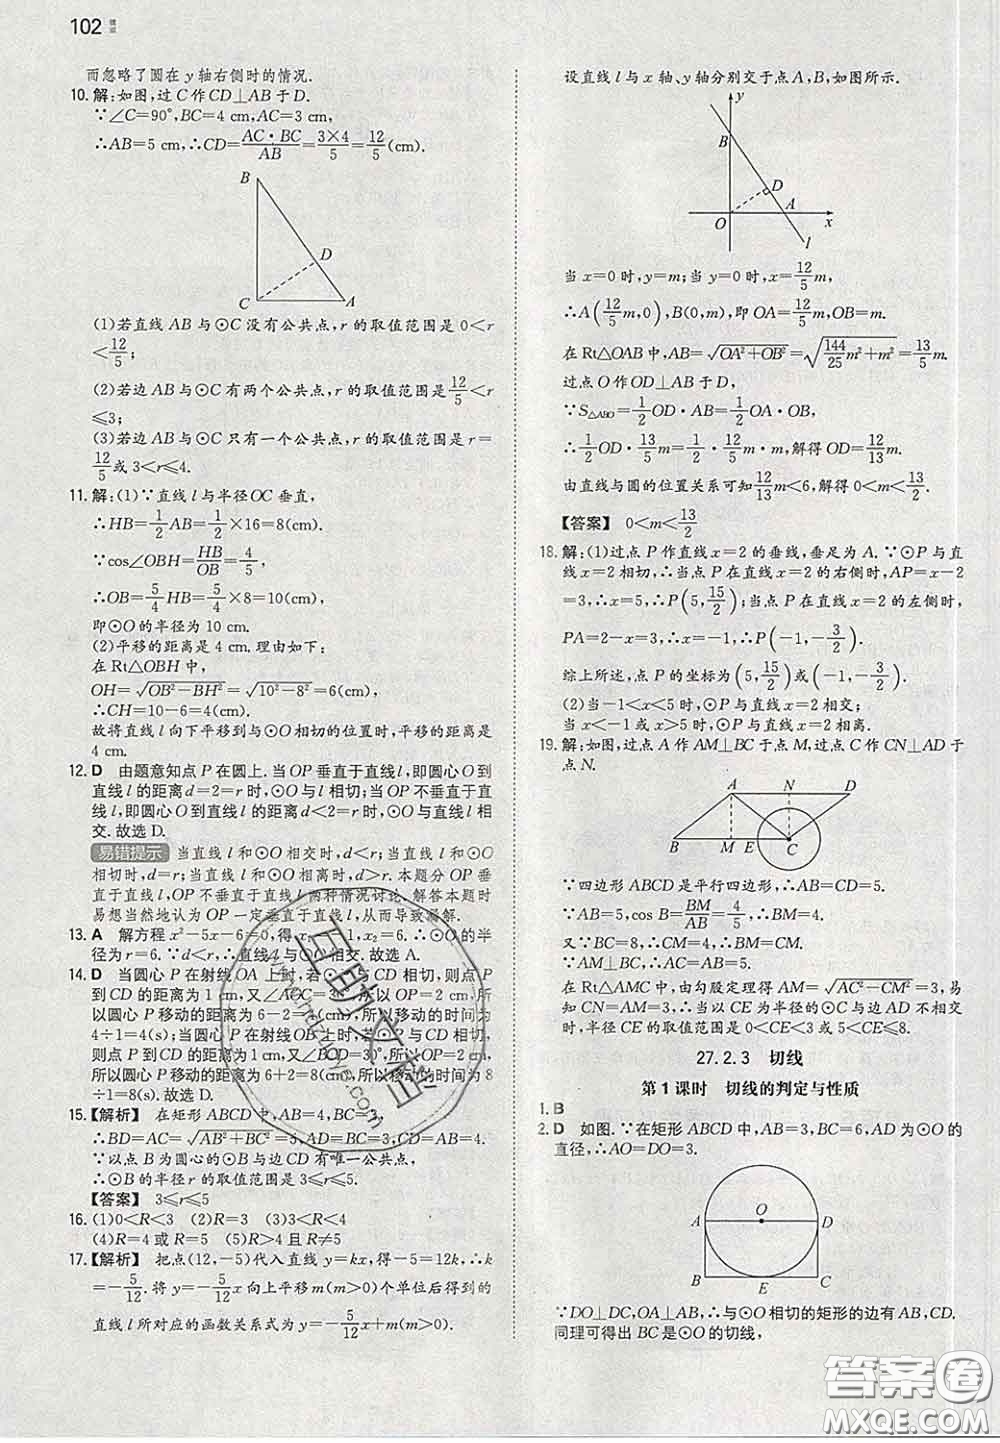 102
而忽略了圆在 y 轴右侧时的情况.
10. 解:如图,过 C 作 CD⊥AB 于 D.
∵∠C=90°,BC=4 cm,AC=3 cm,
∴AB=5 cm,∴CD=AC·BC/AB=3×4/5=12/5(cm).
B
D
C
A
(1)若直线 AB 与⊙C 没有公共点,r 的取值范围是 0<r
<12/5;
(2)若边 AB 与⊙C 有两个公共点,r 的取值范围是 12/5<r
≤3;
(3)若边AB 与⊙C 只有一个公共点,r 的取值范围是 r=
12/5或 3<r≤4.
11. 解:(1)∵直线 l 与半径 OC 垂直,
∴HB=1/2AB=1/2×16=8(cm).
∵cos∠OBH=HB/OB=4/5,
∴OB=5/4HB=5/4×8=10(cm),
即⊙O 的半径为 10 cm.
(2)平移的距离是 4 cm. 理由如下:
在 Rt△OBH 中,
OH=√(OB²-BH²)=√(10²-8²)=6(cm),
∴CH=10-6=4(cm).
故将直线 l 向下平移到与⊙O 相切的位置时,平移的距离是
4 cm.
12. D 由题意知点 P 在圆上. 当 OP 垂直于直线 l,即圆心 O 到
直线 l 的距离 d=2=r 时,⊙O 与 l 相切;当 OP 不垂直于直
线 l,即圆心 O 到直线 l 的距离 d<2=r 时,⊙O 与直线 l 相
交. 故选 D.
易错提示 当直线 l 和⊙O 相交时,d<r;当直线 l 和⊙O
相切时,d=r;当直线 l 和⊙O 相离时,d>r. 本题分 OP 垂
直于直线 l,OP 不垂直于直线 l 两种情况讨论. 解答本题时
易想当然地认为 OP 一定垂直于直线 l,从而导致漏解.
13. A 解方程 x²-5x-6=0,得 x₁=-1,x₂=6. ∴⊙O 的半
径为 r=6. ∵d<r,∴直线 l 与⊙O 相交. 故选 A.
14. D 当圆心 P 在射线 OA 上时,若⊙P 与 CD 相切,则点 P
到 CD 的距离为 1,又∠AOC=30°,所以 OP=2(cm),所
以圆心 P 移动的距离为 6-2=4(cm),所以移动的时间为
4÷1=4(s);当圆心 P 在射线 OB 上时,若⊙P 与 CD 相切,
则点 P 到 CD 的距离为 1,又∠BOD=30°,所以 OP=2(cm),
所以圆心 P 移动的距离为 6+2=8(cm),所以移动的时间为
8÷1=8(s). 故选 D.
15. 【解析】 在矩形 ABCD 中,AB=3,BC=4,
∴BD=AC=√(AB²+BC²)=5,AD=BC=4.
∵以点 B 为圆心的⊙B 与边 CD 有唯一公共点,
∴⊙B 的半径 r 的取值范围是 3≤r≤5.
【答案】 3≤r≤5
16. (1)0<R<3 (2)R=3 (3)3<R<4
(4)R=4 或 R=5 (5)R>4 且 R≠5
17. 【解析】 把点(12,-5)代入直线 y=kx,得-5=12k,∴k
=-5/12. 将 y=-5/12x 向上平移 m(m>0)个单位后得到的
直线 l 所对应的函数关系式为 y=-5/12x+m(m>0).
设直线 l 与 x 轴、y 轴分别交于点 A,B,如图所示.
y
B
D
O
A
x
l
当 x=0 时,y=m;当 y=0 时,x=12/5m,
∴A(12/5m,0),B(0,m),即 OA=12/5m,OB=m.
在 Rt△OAB 中,AB=√(OA²+OB²)=√(144/25m²+m²)=13/5m.
过点 O 作 OD⊥AB 于 D,
∵S△ABO=1/2OD·AB=1/2OA·OB,
∴1/2OD·13/5m=1/2·12/5m·m,解得 OD=12/13m.
由直线与圆的位置关系可知12/13m<6,解得 0<m<13/2.
【答案】 0<m<13/2
18. 解:(1)过点 P 作直线 x=2 的垂线,垂足为 A. ∵⊙P 与直
线 x=2 相切,∴当点 P 在直线 x=2 的右侧时,AP=x-2
=3,∴x=5,∴P(5,15/2);当点 P 在直线 x=2 的左侧时,
PA=2-x=3,∴x=-1,∴P(-1,-3/2).
综上所述,点 P 的坐标为(5,15/2)或(-1,-3/2).
(2)当-1<x<5 时,⊙P 与直线 x=2 相交;
当 x<-1 或 x>5 时,⊙P 与直线 x=2 相离.
19. 解:如图,过点 A 作 AM⊥BC 于点 M,过点 C 作 CN⊥AD 于
点 N.
A
N
D
B
M
E
C
∵四边形 ABCD 是平行四边形,∴AB=CD=5.
∵AB=5,cos B=BM/AB=4/5,∴BM=4.
又∵BC=8,∴CM=4,∴BM=CM.
∵AM⊥BC,∴AC=AB=5.
在 Rt△AMC 中,由勾股定理得 AM=√(AC²-CM²)=3,易
知 CN=AM=3,∴当以 CE 为半径的⊙C 与边 AD 不相
交时,半径 CE 的取值范围是 0<CE<3 或 5<CE≤8.
27.2.3 切线
第 1 课时 切线的判定与性质
1. B
2. D 如图. ∵在矩形 ABCD 中,AB=3,BC=6,AD 为⊙O 的
直径,∴AO=DO=3.
A
O
D
B
E
C
∵DO⊥DC,OA⊥AB,∴与⊙O 相切的矩形的边有 AB,CD.
同理可得出 BC 是⊙O 的切线,
答案卷
MXQE.COM